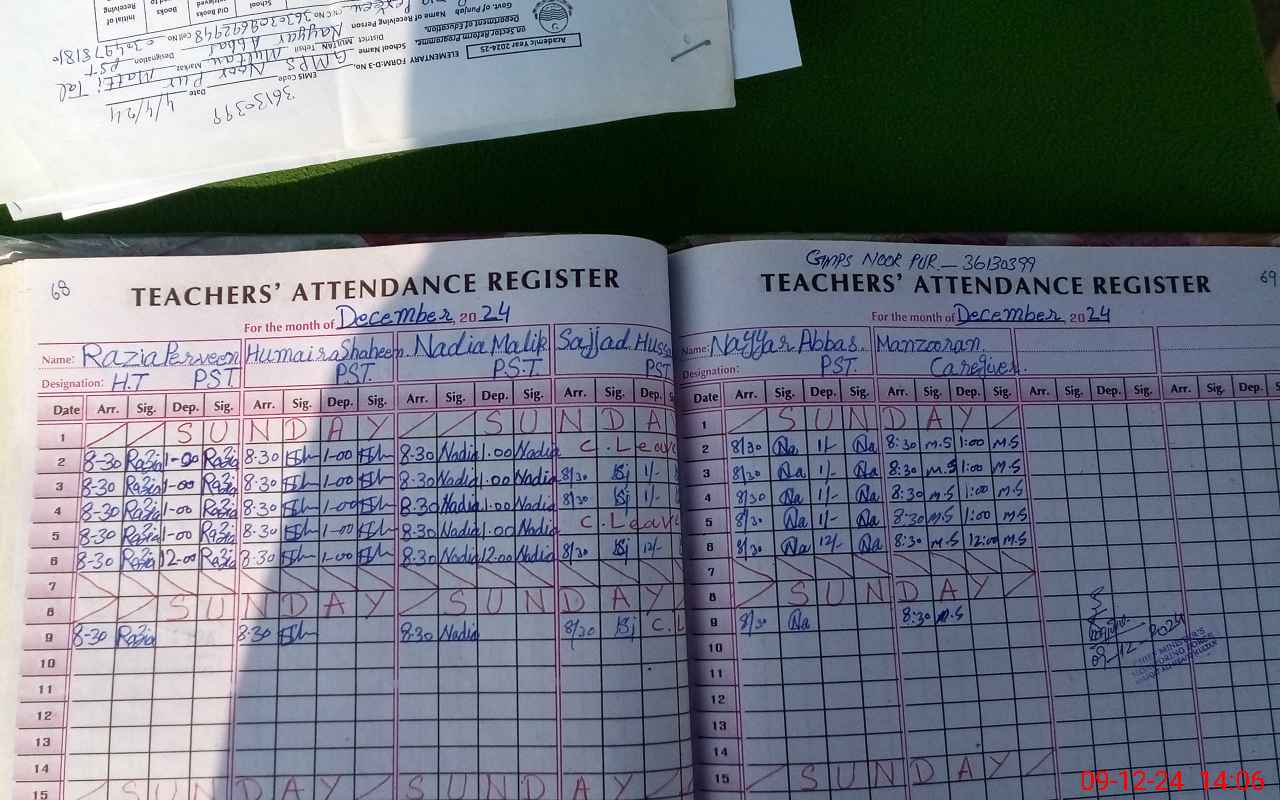 ELEMENTARY FORM:D-3 No.
Academic Year 2024-25
on Sector Reform Programme
Department of Education.
Govt. of Punjab
36130399
EMIS Code
Date 4/4/24
School Name GMPS Noor Pur Matti Tal
District MULTAN Tehsil Multan Markaz
Name of Receiving Person Nayyar Abbas Designation PST
CNIC No 3630309692948 Cell No
School
Old Books
Books
Initial of
Receiving
68
TEACHERS' ATTENDANCE REGISTER
For the month of December, 2024
Name: Razia Perveen Humaira Shaheen Nadia Malik Sajjad
Designation: H.T PST PST. P.S.T. PST
Date Arr. Sig. Dep. Sig. Arr. Sig. Dep. Sig. Arr. Sig. Dep. Sig. Arr. Sig. Dep.
1 SUNDAY SUNDA
2 8-30 Razia 1-00 Razia 8-30 1-00 8-30 Nadia 1.00 Nadia C.Leave
3 8-30 Razia 1-00 Razia 8-30 1-00 8-30 Nadia 1.00 Nadia 8/30 Sj 1/-
4 8-30 Razia 1-00 Razia 8-30 1-00 8-30 Nadia 1.00 Nadia 8/30 Sj 1/-
5 8-30 Razia 1-00 Razia 8-30 1-00 8-30 Nadia 1.00 Nadia C.Leave
6 8-30 Razia 12-00 Razia 8-30 1-00 8-30 Nadia 12.00 Nadia 8/30 Sj 12/-
7
8 SUNDAY SUNDAY
9 8-30 Razia 8-30 8-30 Nadia 8/30 Sj C.L
10
11
12
13
14
15 SUNDAY SUNDAY
GMPS NOOR PUR - 36130399
69
TEACHERS' ATTENDANCE REGISTER
For the month of December 2024
Name: Nayyar Abbas. Manzooran.
Designation: PST. Caregiver.
Date Arr. Sig. Dep. Sig. Arr. Sig. Dep. Sig. Arr. Sig. Dep. Sig. Arr. Sig. Dep.
1 SUNDAY
2 8/30 Na 1/- Na 8:30 M.S 1:00 M.S
3 8/30 Na 1/- Na 8:30 M.S 1:00 M.S
4 8/30 Na 1/- Na 8:30 M.S 1:00 M.S
5 8/30 Na 1/- Na 8:30 M.S 1:00 M.S
6 8/30 Na 12/- Na 8:30 M.S 12:00 M.S
7
8 SUNDAY
9 8/30 Na 8:30 M.S
10
11
12
13
14
15 SUNDAY
09-12-2024
CHIEF MINISTER'S
MONITORING FORCE
09-12-24 14:06